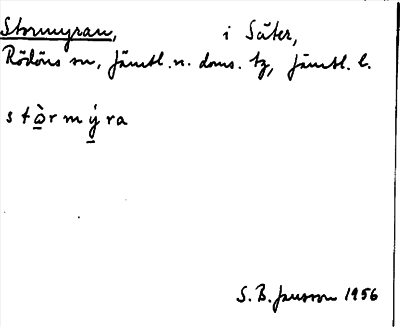 Stormyran, i Säter,
Rödöns sn, Jämtl. n. doms. tg, Jämtl. l.
s t ò̱ r m ý̱ r a
S. B. Jansson 1956